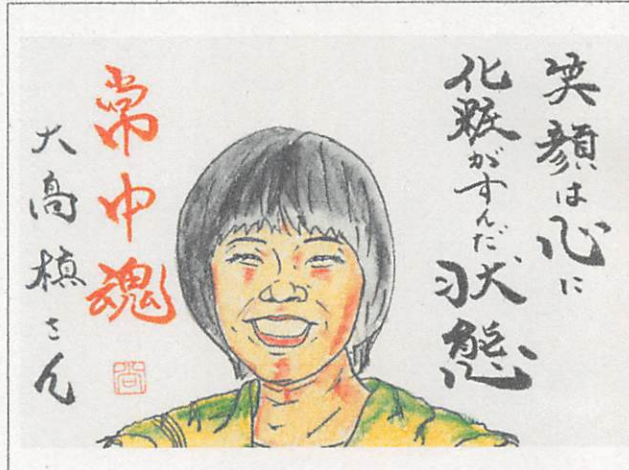 笑顔は心に
化粧がすんだ、
状態
常中魂
大高槙さん
尚